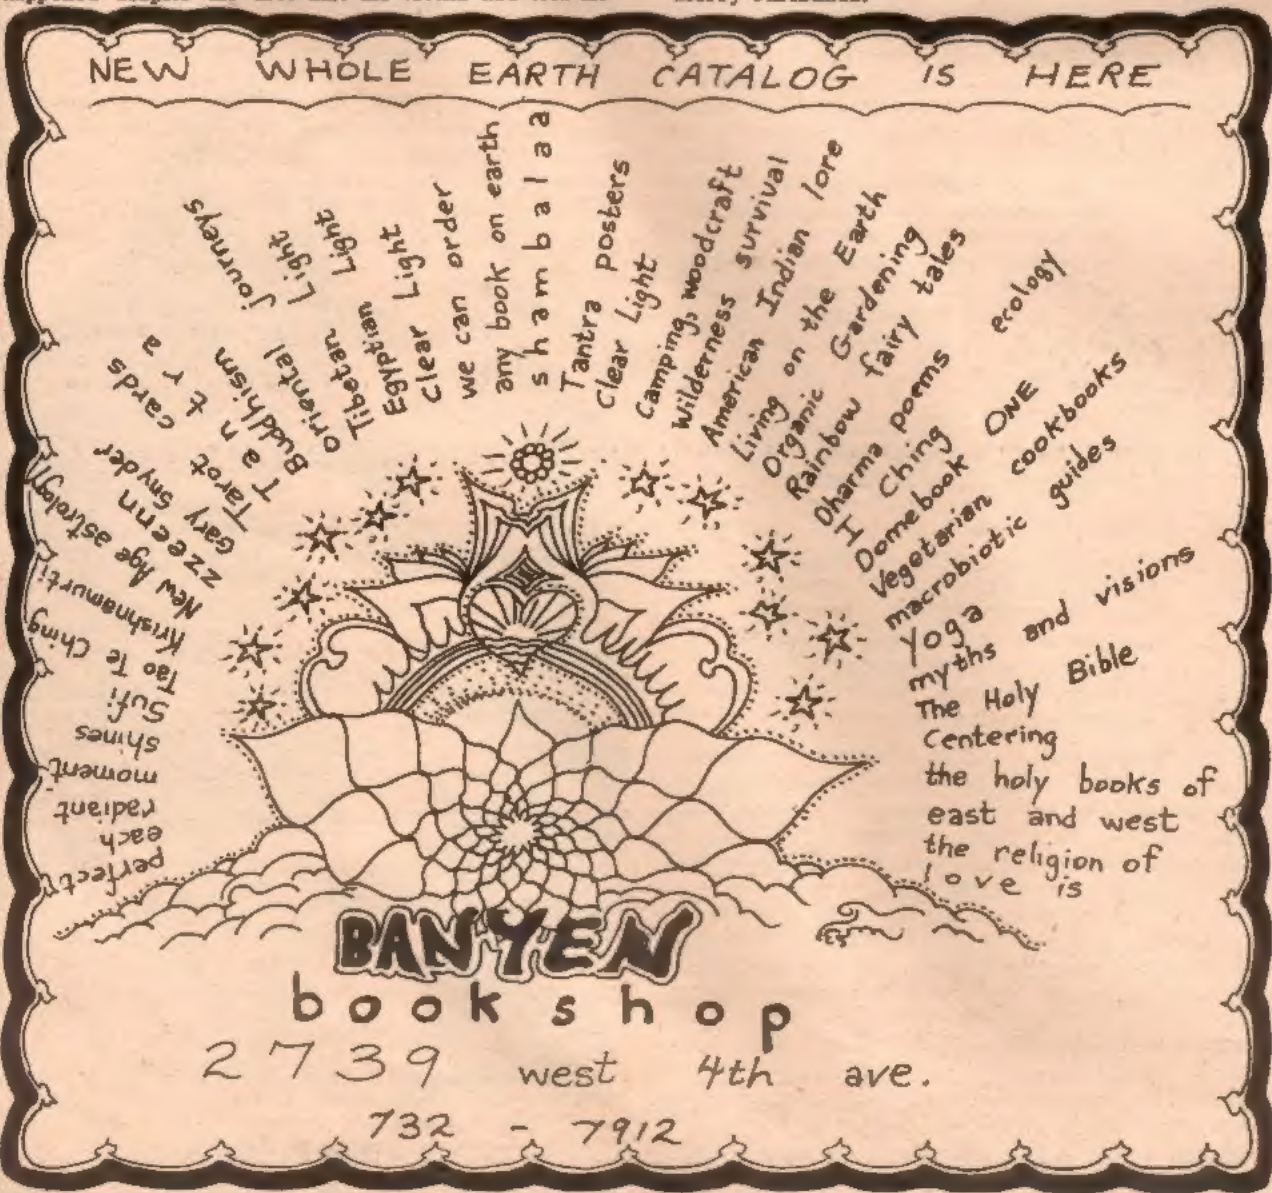 NEW WHOLE EARTH CATALOG IS HERE
perfect
each
radiant
moment
shines
Sufi
Tao Te Ching
Krishnamurti
New Age astrology
zzeenn
Gary Snyder
Tarot cards
T a n t r a
Buddhism
oriental journeys
Tibetan Light
Egyptian Light
Clear Light
we can order
any book on earth
s h a m b a l a a
Tantra posters
Clear Light
Camping, woodcraft
Wilderness survival
American Indian lore
Living on the Earth
Organic Gardening
Rainbow fairy tales
Dharma poems ecology
I Ching
Domebook ONE
Vegetarian cookbooks
macrobiotic guides
Yoga
myths and visions
The Holy Bible
Centering
the holy books of
east and west
the religion of
love is
BANYEN
bookshop
2739 west 4th ave.
732 - 7912